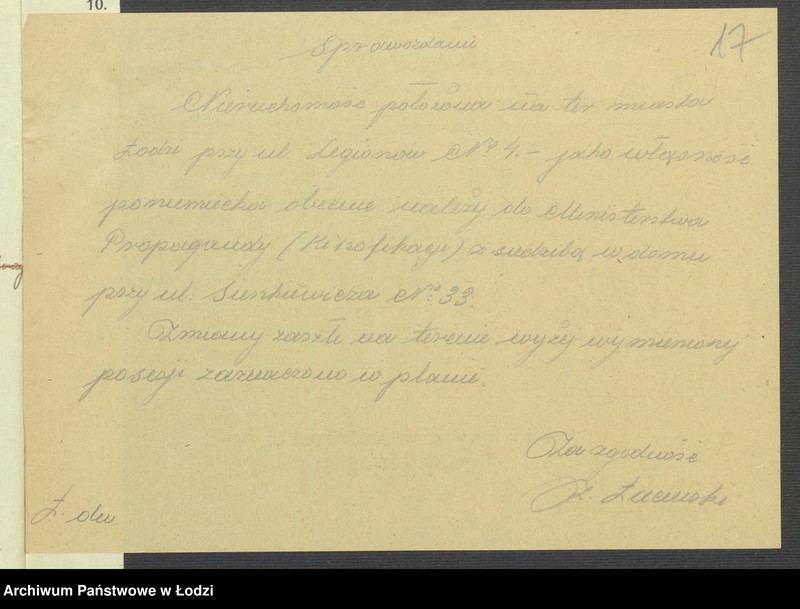 10.
17
Sprawozdanie
Nieruchomość położona na ter. miasta
Łodzi przy ul. Legionów № 4. – jako własność
poniemiecka obecnie należy do Ministerstwa
Propagandy (Kinofikacji) z siedzibą w domu
przy ul. Sienkiewicza № 33.
Zmiany zaszłe na terenie wyży wymieniony
posesji zaznaczono w planie.
Za zgodność
Ł. dn.
Archiwum Państwowe w Łodzi